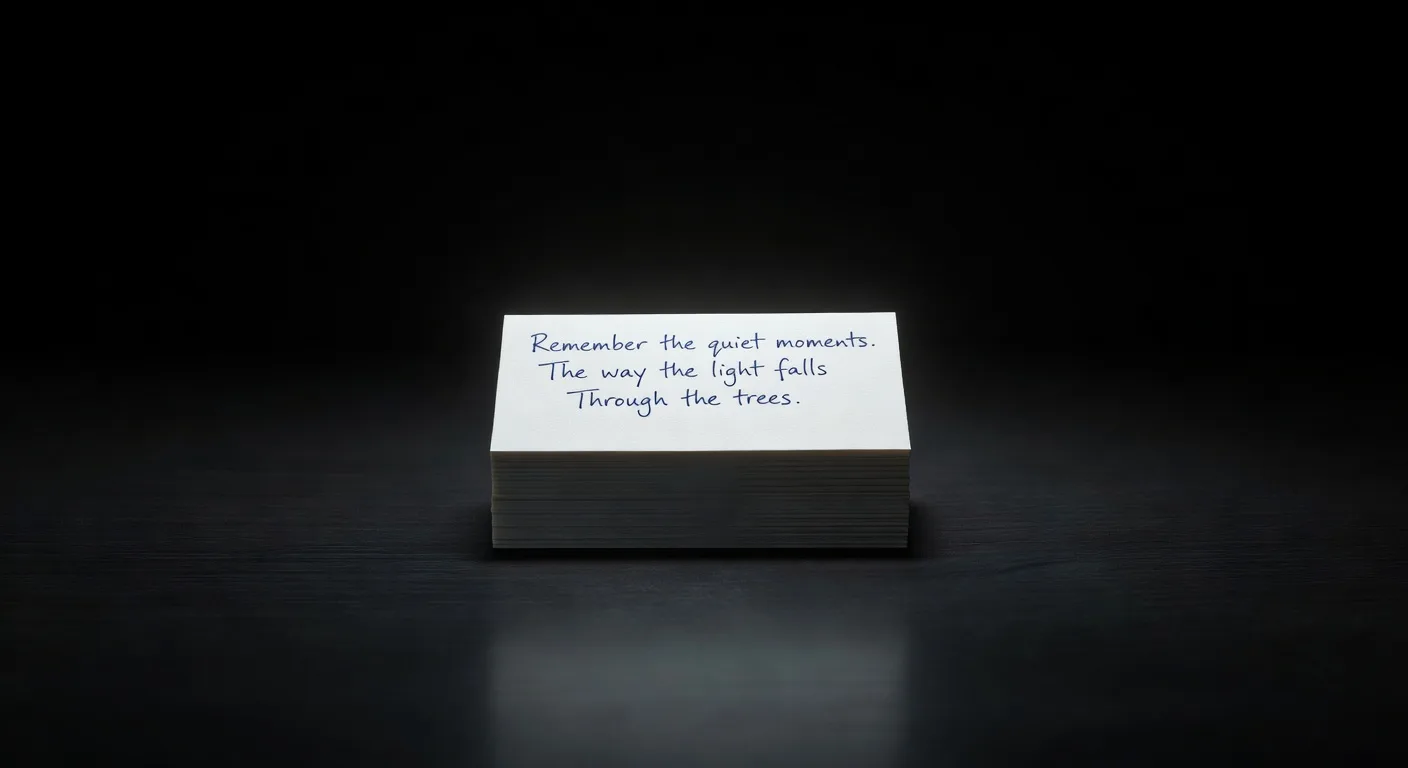 Remember the quiet moments.
The way the light falls
Through the trees.